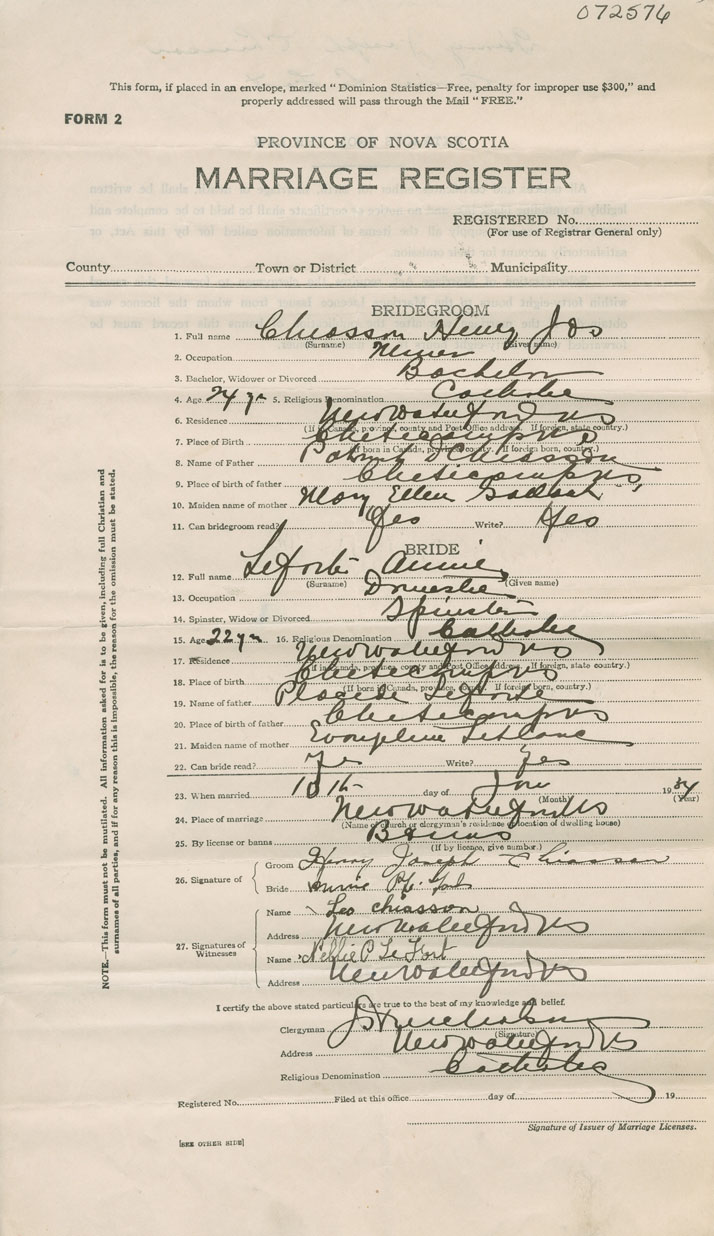 072576
This form, if placed in an envelope, marked "Dominion Statistics—Free, penalty for improper use $300," and
properly addressed will pass through the Mail "FREE."
FORM 2
PROVINCE OF NOVA SCOTIA
MARRIAGE REGISTER
REGISTERED No.
(For use of Registrar General only)
County Town or District Municipality
BRIDEGROOM
1. Full name Chiasson Henry Jos
(Surname) (Given name)
2. Occupation Miner
3. Bachelor, Widower or Divorced Bachelor
4. Age 24 yr 5. Religious Denomination Catholic
6. Residence New Waterford NS
(If in Canada, province, county and Post Office address. If foreign, state country.)
7. Place of Birth Cheticamp NS
(If born in Canada, province, county. If foreign born, country.)
8. Name of Father Patrick Chiasson
9. Place of birth of father Cheticamp NS
10. Maiden name of mother Mary Ellen
11. Can bridegroom read? Yes Write? Yes
BRIDE
12. Full name LeFort Annie
(Surname) (Given name)
13. Occupation Domestic
14. Spinster, Widow or Divorced Spinster
15. Age 22 yr 16. Religious Denomination Catholic
17. Residence New Waterford NS
(If in Canada, province, county and Post Office address. If foreign, state country.)
18. Place of birth Cheticamp NS
(If born in Canada, province, county. If foreign born, country.)
19. Name of father Placide LeFort
20. Place of birth of father Cheticamp NS
21. Maiden name of mother Evangeline LeBlanc
22. Can bride read? Yes Write? Yes
23. When married day of Jan 1934
(Month) (Year)
24. Place of marriage New Waterford NS
(Name of church or clergyman's residence or location of dwelling house)
25. By license or banns Banns
(If by licence, give number.)
26. Signature of Groom Henry Joseph Chiasson
Bride Annie
27. Signatures of Witnesses
Name Leo Chiasson
Address New Waterford NS
Name Nellie P LeFort
Address New Waterford NS
I certify the above stated particulars are true to the best of my knowledge and belief.
Clergyman
(Signature)
Address New Waterford NS
Religious Denomination Catholic
Registered No. Filed at this office day of 19
Signature of Issuer of Marriage Licenses.
[SEE OTHER SIDE]
NOTE.—This form must not be mutilated. All information asked for is to be given, including full Christian and
surnames of all parties, and if for any reason this is impossible, the reason for the omission must be stated.